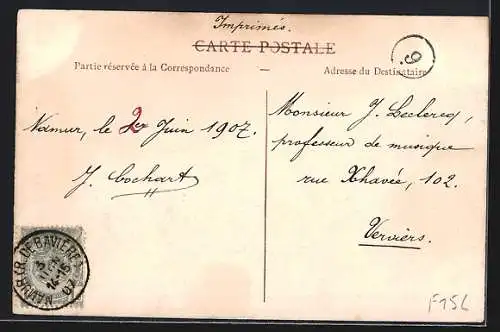 Imprimés.
CARTE POSTALE
9.
Partie réservée à la Correspondance — Adresse du Destinataire
Namur, le 2 Juin 1907.
J. Cochart
Monsieur J. Leclercq,
professeur de musique
rue Xhavée, 102.
Verviers.
NAMUR (R. DE BAVIÈRE)
14-15
07
F15L